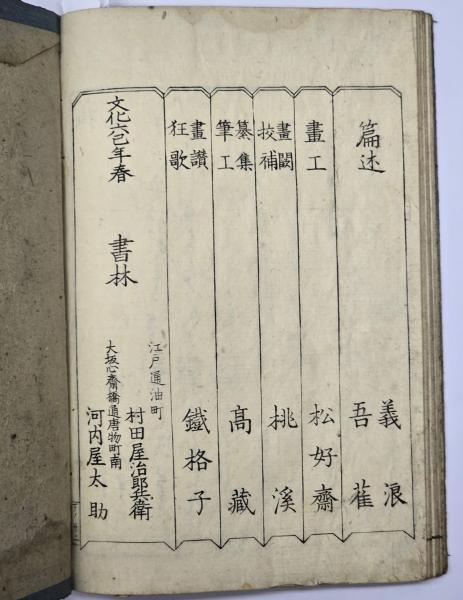 篇述
義浪
吾雚
畫工
松好齋
畫闕
挍補
桃溪
纂集
筆工
高藏
畫讚
狂歌
鐵格子
文化六己年春
書林
江戸通油町
村田屋治郎兵衛
大坂心齋橋通唐物町南
河内屋太助